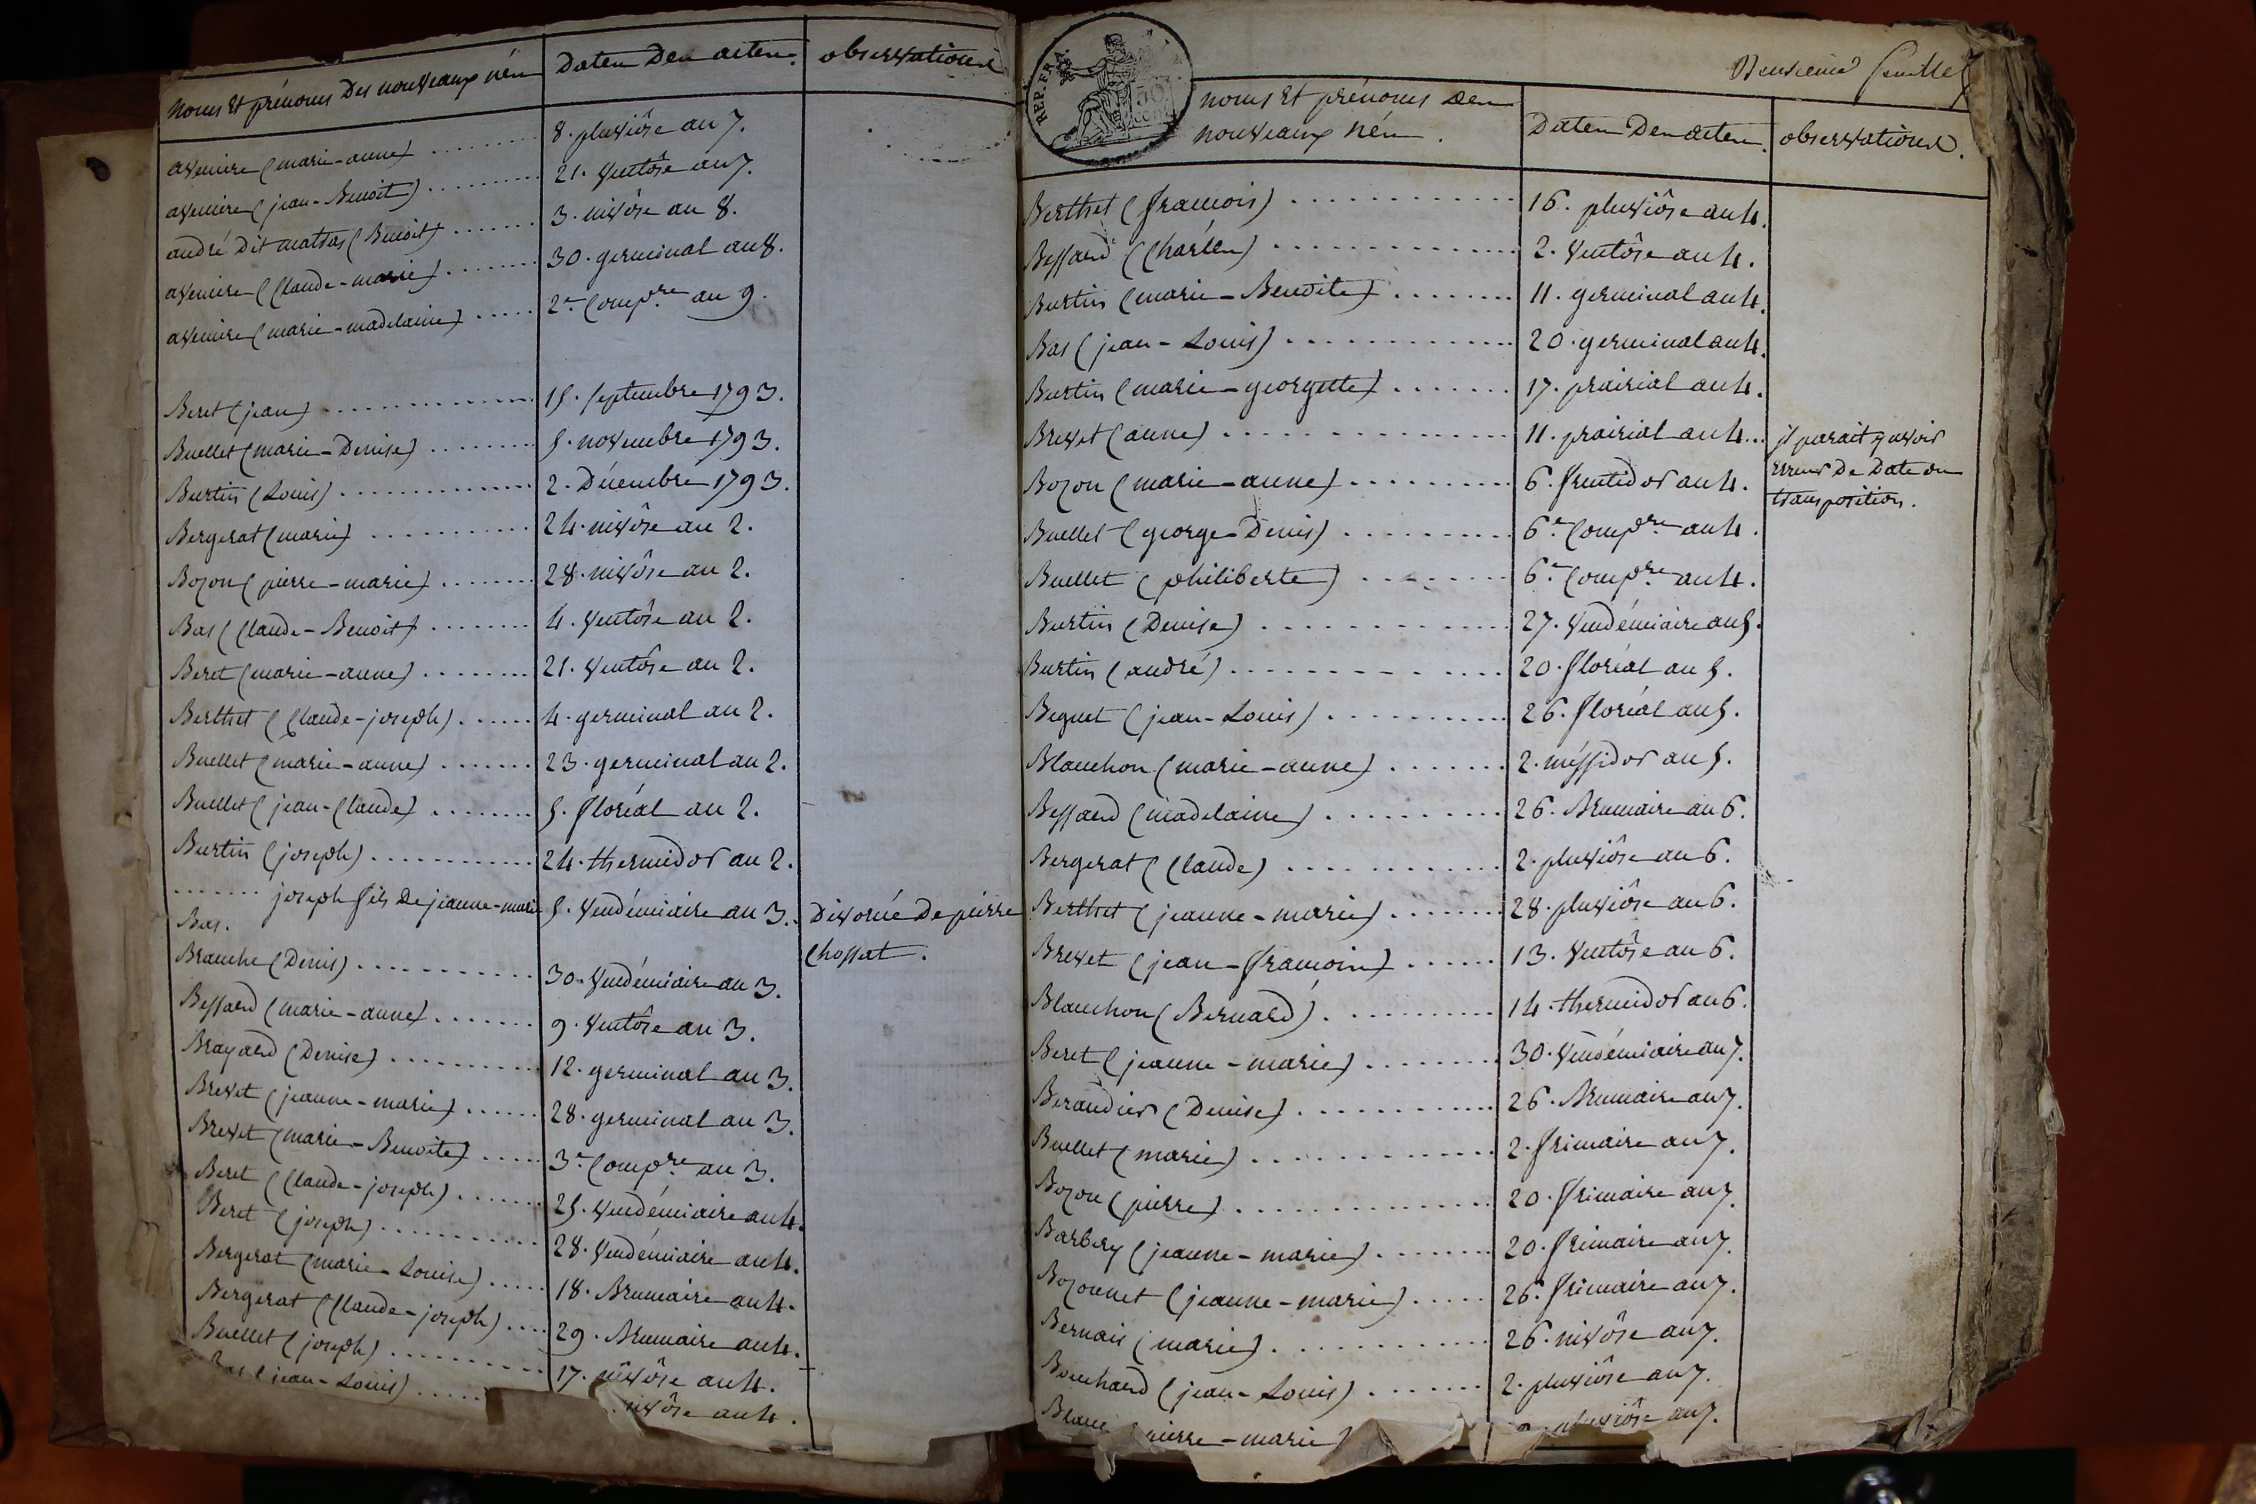 noms Et prénoms Des nouveaux nés Dates Des actes. observations
aveniere (marie-anne) 8. pluviôse an 7.
aveniere (jean-Benoit) 21. ventôse an 7.
andré Dit mattas (Benoit) 3. nivôse an 8.
aveniere (Claude-marie) 30. germinal an 8.
aveniere (marie-madelaine) 2.e Comp.re an 9.
Beret (jean) 15. septembre 1793.
Buellet (marie-Denise) 5. novembre 1793.
Burtin (Louis) 2. Décembre 1793.
Bergerat (marie) 24. nivôse an 2.
Bozon (pierre-marie) 28. nivôse an 2.
Bas (Claude-Benoit) 4. ventôse an 2.
Beret (marie-anne) 21. ventôse an 2.
Berthet (Claude-joseph) 4. germinal an 2.
Buellet (marie-anne) 23. germinal an 2.
Buellet (jean-Claude) 5. floréal an 2.
Burtin (joseph) 24. thermidor an 2.
joseph fils De jeanne-marie 5. vendémiaire an 3. Divorcée De pierre
Bas. Chossat.
Branche (Denis) 30. vendémiaire an 3.
Bessard (marie-anne) 9. ventôse an 3.
Brayard (Denise) 12. germinal an 3.
Brevet (jeanne-marie) 28. germinal an 3.
Brevet (marie-Benoite) 3.e Comp.re an 3.
Beret (Claude-joseph) 25. vendémiaire an 4.
Beret (joseph) 28. vendémiaire an 4.
Bergerat (marie-Louise) 18. Brumaire an 4.
Bergerat (Claude-joseph) 29. Brumaire an 4.
Buellet (joseph) 17. nivôse an 4.
Bas (jean-Louis) nivôse an 4.
REP. FRA.
Deuxieme feuillet
noms Et prénoms Des
nouveaux nés. Dates Des actes. observations.
Berthet (francois) 16. pluviôse an 4.
Bessard (Charles) 2. ventôse an 4.
Burtin (marie-Benoite) 11. germinal an 4.
Bas (jean-Louis) 20. germinal an 4.
Burtin (marie-georgette) 17. prairial an 4.
Brevet (anne) 11. prairial an 4... il parait y avoir
Bozon (marie-anne) 6. fructidor an 4. erreur De Date ou
transposition.
Buellet (george-Denis) 6.e Comp.re an 4.
Buellet (philiberte) 6.e Comp.re an 4.
Burtin (Denise) 27. vendémiaire an 5.
Burtin (andré) 20. floréal an 5.
Beguet (jean-Louis) 26. floréal an 5.
Blanchon (marie-anne) 2. messidor an 5.
Bessard (madelaine) 26. Brumaire an 6.
Bergerat (Claude) 2. pluviôse an 6.
Berthet (jeanne-marie) 28. pluviôse an 6.
Brevet (jean-francois) 13. ventôse an 6.
Blanchon (Bernard) 14. thermidor an 6.
Beret (jeanne-marie) 30. vendémiaire an 7.
Beraudier (Denise) 26. Brumaire an 7.
Buellet (marie) 2. frimaire an 7.
Bozon (pierre) 20. frimaire an 7.
Barbery (jeanne-marie) 20. frimaire an 7.
Bozonnet (jeanne-marie) 26. frimaire an 7.
Bernais (marie) 26. nivôse an 7.
Bouchard (jean-Louis) 2. pluviôse an 7.
Blanc pierre-marie pluviôse an 7.